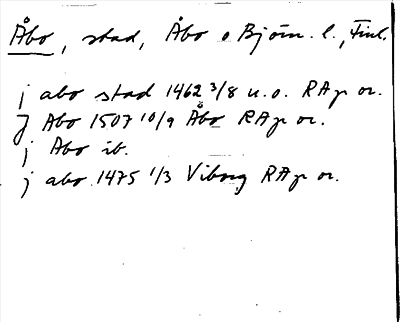 Åbo, stad, Åbo o Björn. l., Finl.
j abo stad 1462 3/8 u.o. RAp or.
J Abo 1507 10/9 Åbo RAp or.
j Abo ib.
j abo 1475 1/3 Viborg RAp or.